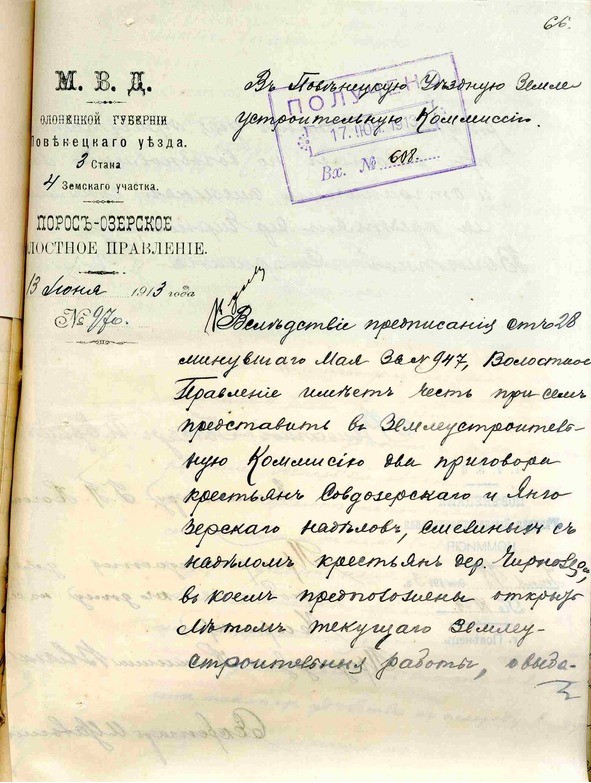 66.
М. В. Д.
ОЛОНЕЦКОЙ ГУБЕРНІИ
Повѣнецкаго уѣзда.
3 Стана
4 Земскаго участка.
ПОРОСЪ-ОЗЕРСКОЕ
ЛОСТНОЕ ПРАВЛЕНІЕ.
13 Іюня 1913 года
№ 970.
Въ Повѣнецкую Уѣздную Земле
устроительную Коммиссію.
ПОЛУЧЕНО
17. ІЮН. 1913
Вх. № 608.
Вслѣдствіе предписанія отъ 28
минувшаго Мая за № 947, Волостное
Правленіе имѣетъ честь при семъ
представить въ Землеустроитель-
ную Коммисію два приговора
крестьянъ Совдозерскаго и Янго
зерскаго надѣловъ, смежныхъ съ
надѣломъ крестьянъ дер.
въ коемъ предположены открыть
лѣтомъ текущаго землеу-
строительныя работы, о выда-